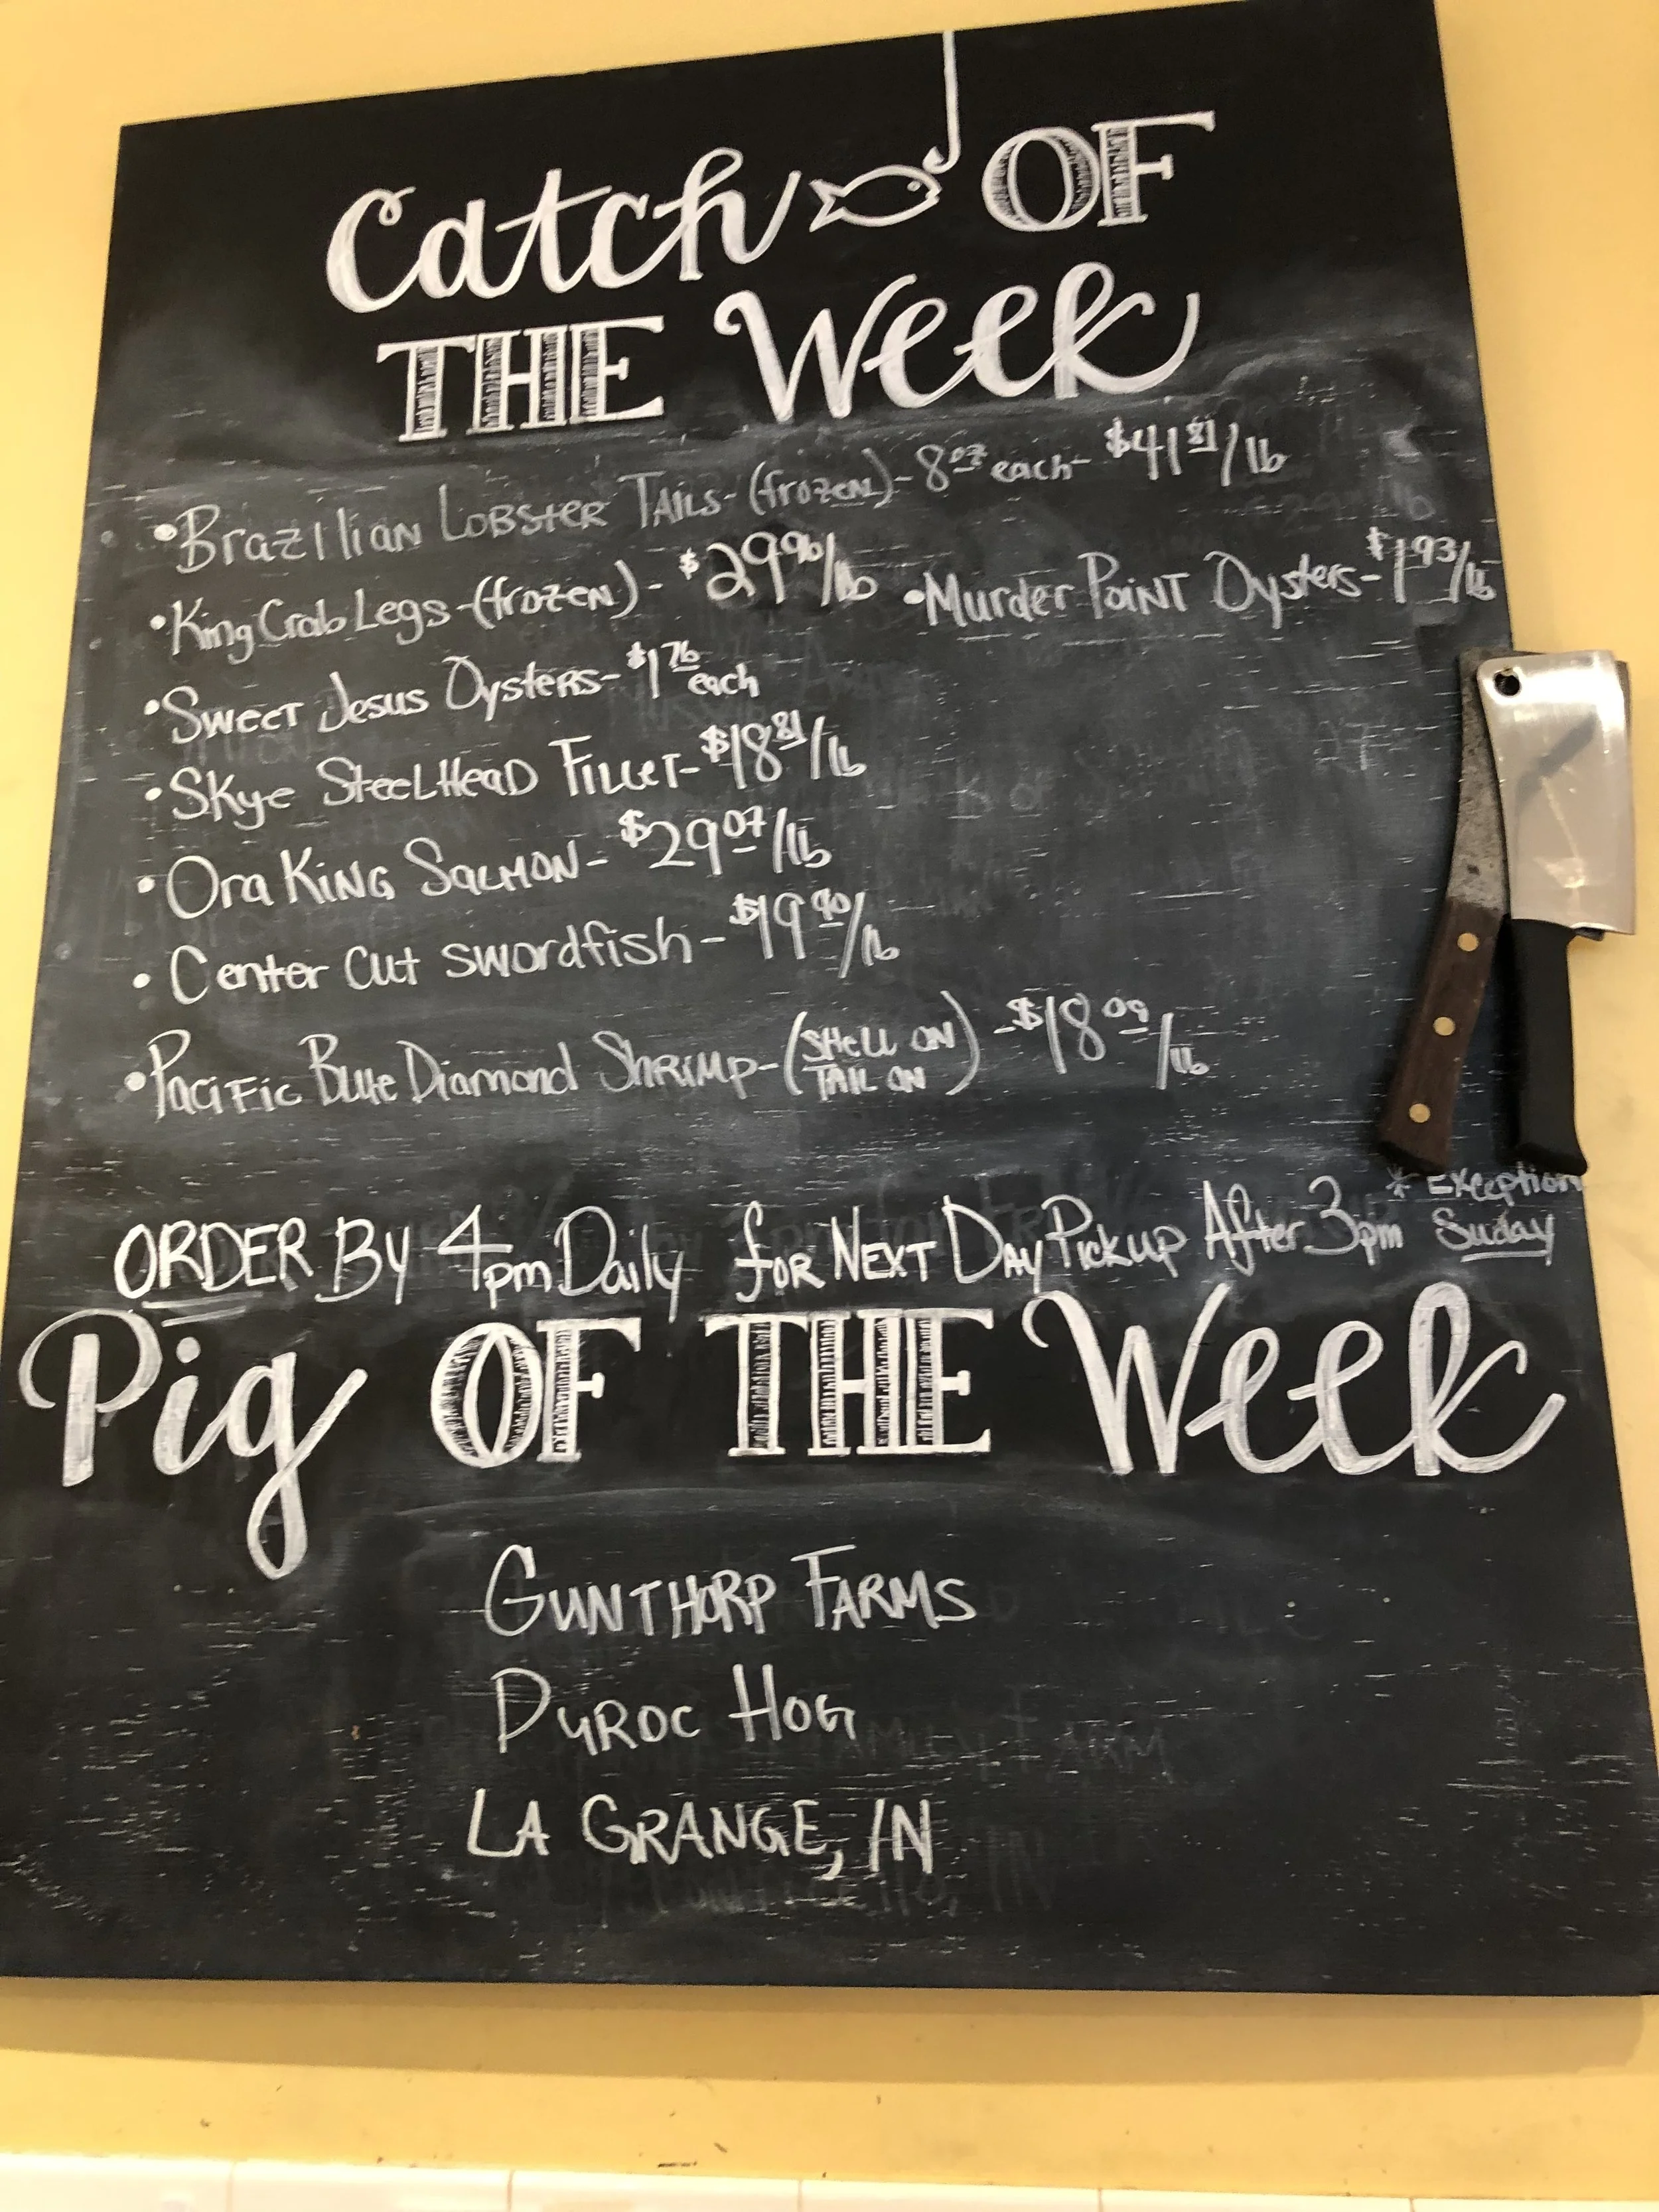 Catch OF
THE Week
•Brazilian Lobster Tails-(frozen)-8oz each-$41.81/lb
•King Crab Legs-(frozen)-$29.96/lb •Murder Point Oysters-$1.93/lb
•Sweet Jesus Oysters-$1.76 each
•Skye SteelHead Fillet-$18.81/lb
•Ora King Salmon-$29.07/lb
•Center Cut swordfish-$19.90/lb
•Pacific Blue Diamond Shrimp-(SHELL ON TAIL ON)-$18.09/lb
* Exception
ORDER By 4pm Daily for Next Day Pickup After 3pm Suday
Pig OF THE Week
GUNTHORP FARMS
DUROC HOG
LA GRANGE, IN